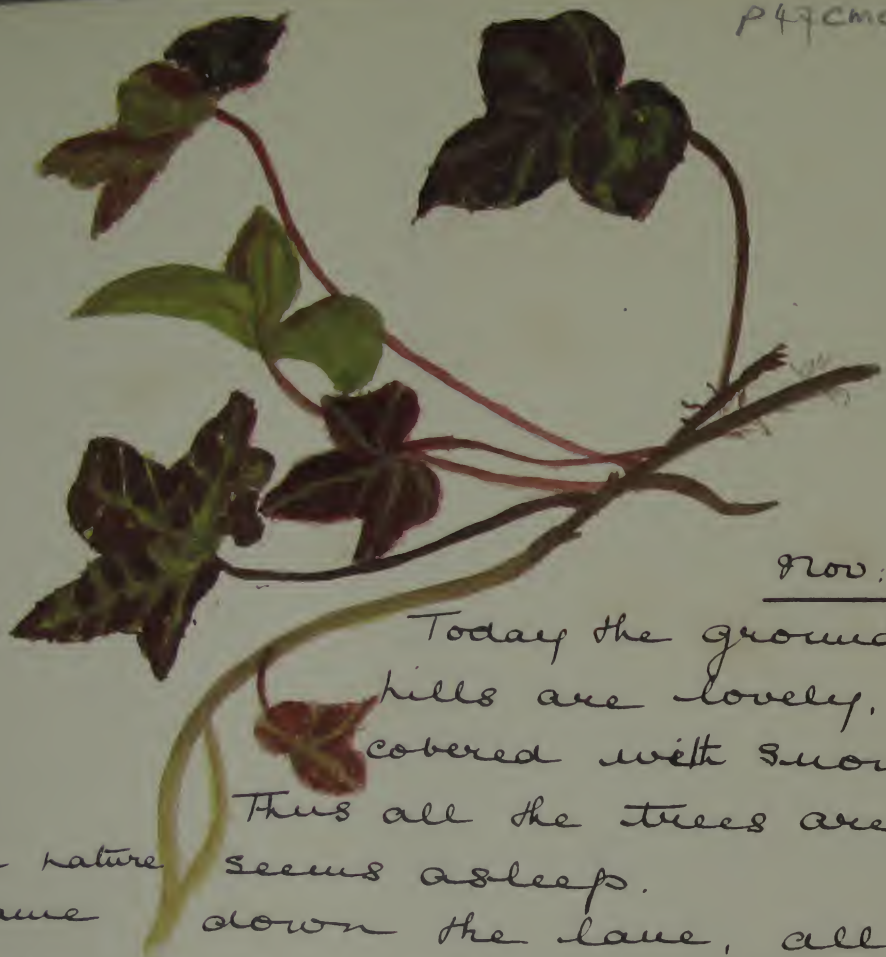 P47cm
Nov:
Today the ground
hills are lovely,
covered with snow
Thus all the trees are
nature seems asleep.
down the lane, all